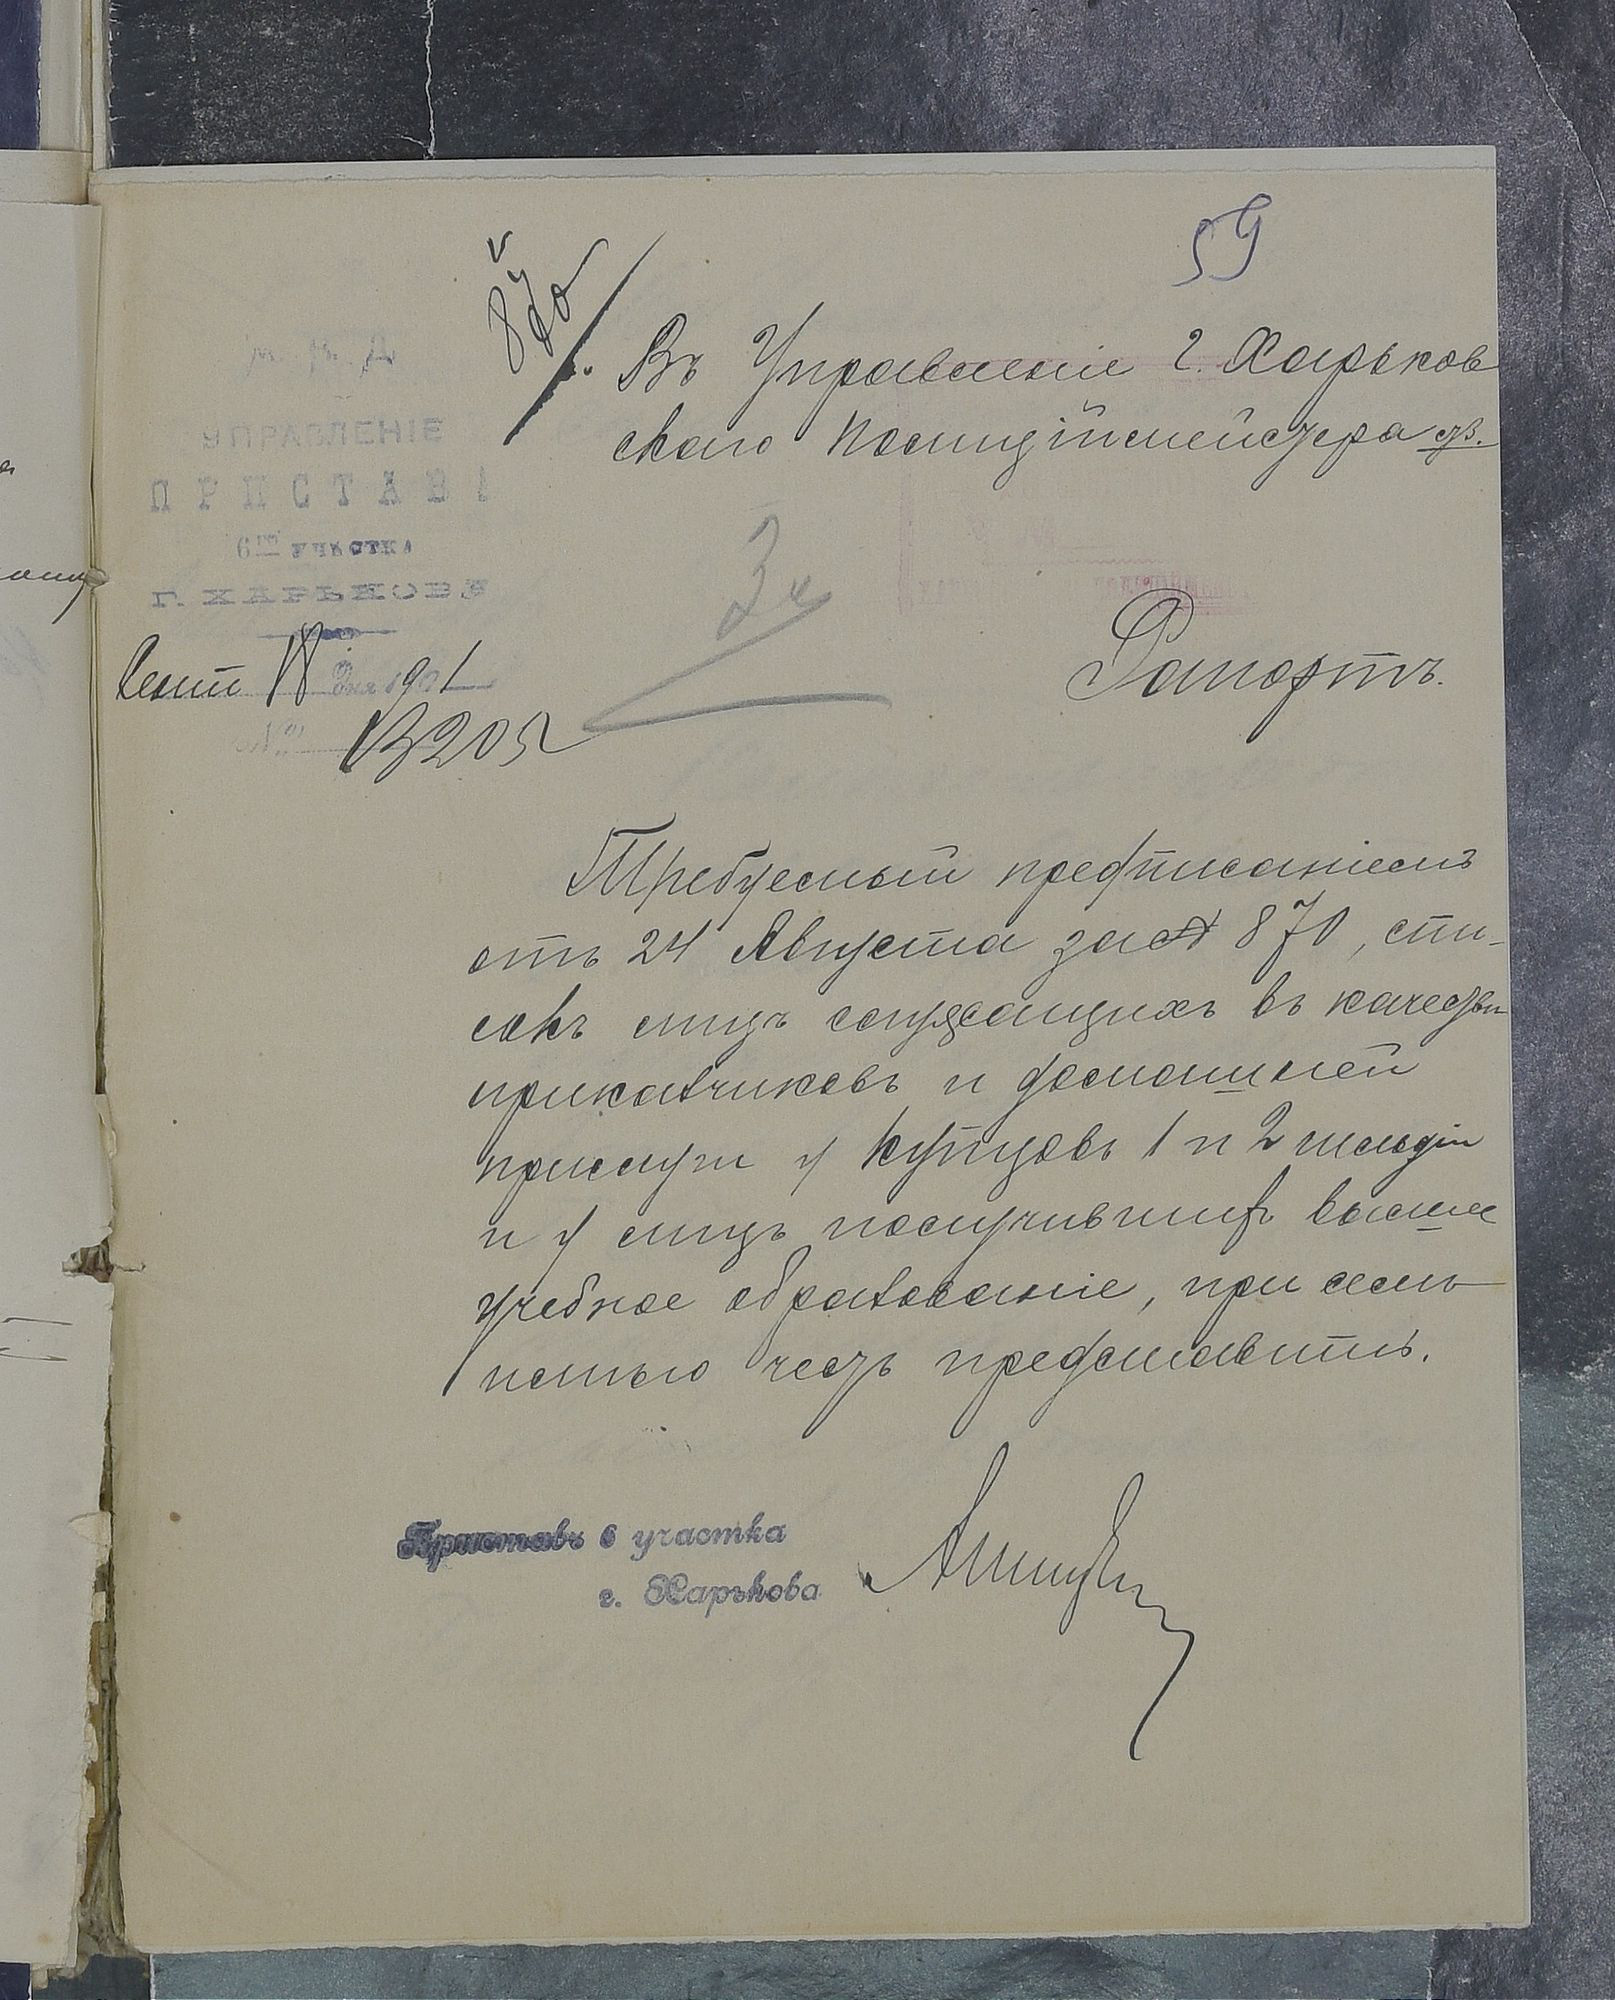 59
870
Въ Управленіе г. Харьков
скаго Полиціймейстера
М. В. Д.
УПРАВЛЕНІЕ
ПРИСТАВА
6го УЧАСТКА
Г. ХАРЬКОВА
Сент 18 дня 1901
№ 13205
Рапортъ.
Требуемый предписаніемъ
отъ 24 Августа за № 870, спи-
сокъ лицъ служащихъ въ качеств
прикащиковъ и домашней
прислуги у купцовъ 1 и 2 гильдіи
и у лицъ получившихъ высшее
учебное образованіе, при семъ
имѣю честь представить.
Приставъ 6 участка
г. Харькова